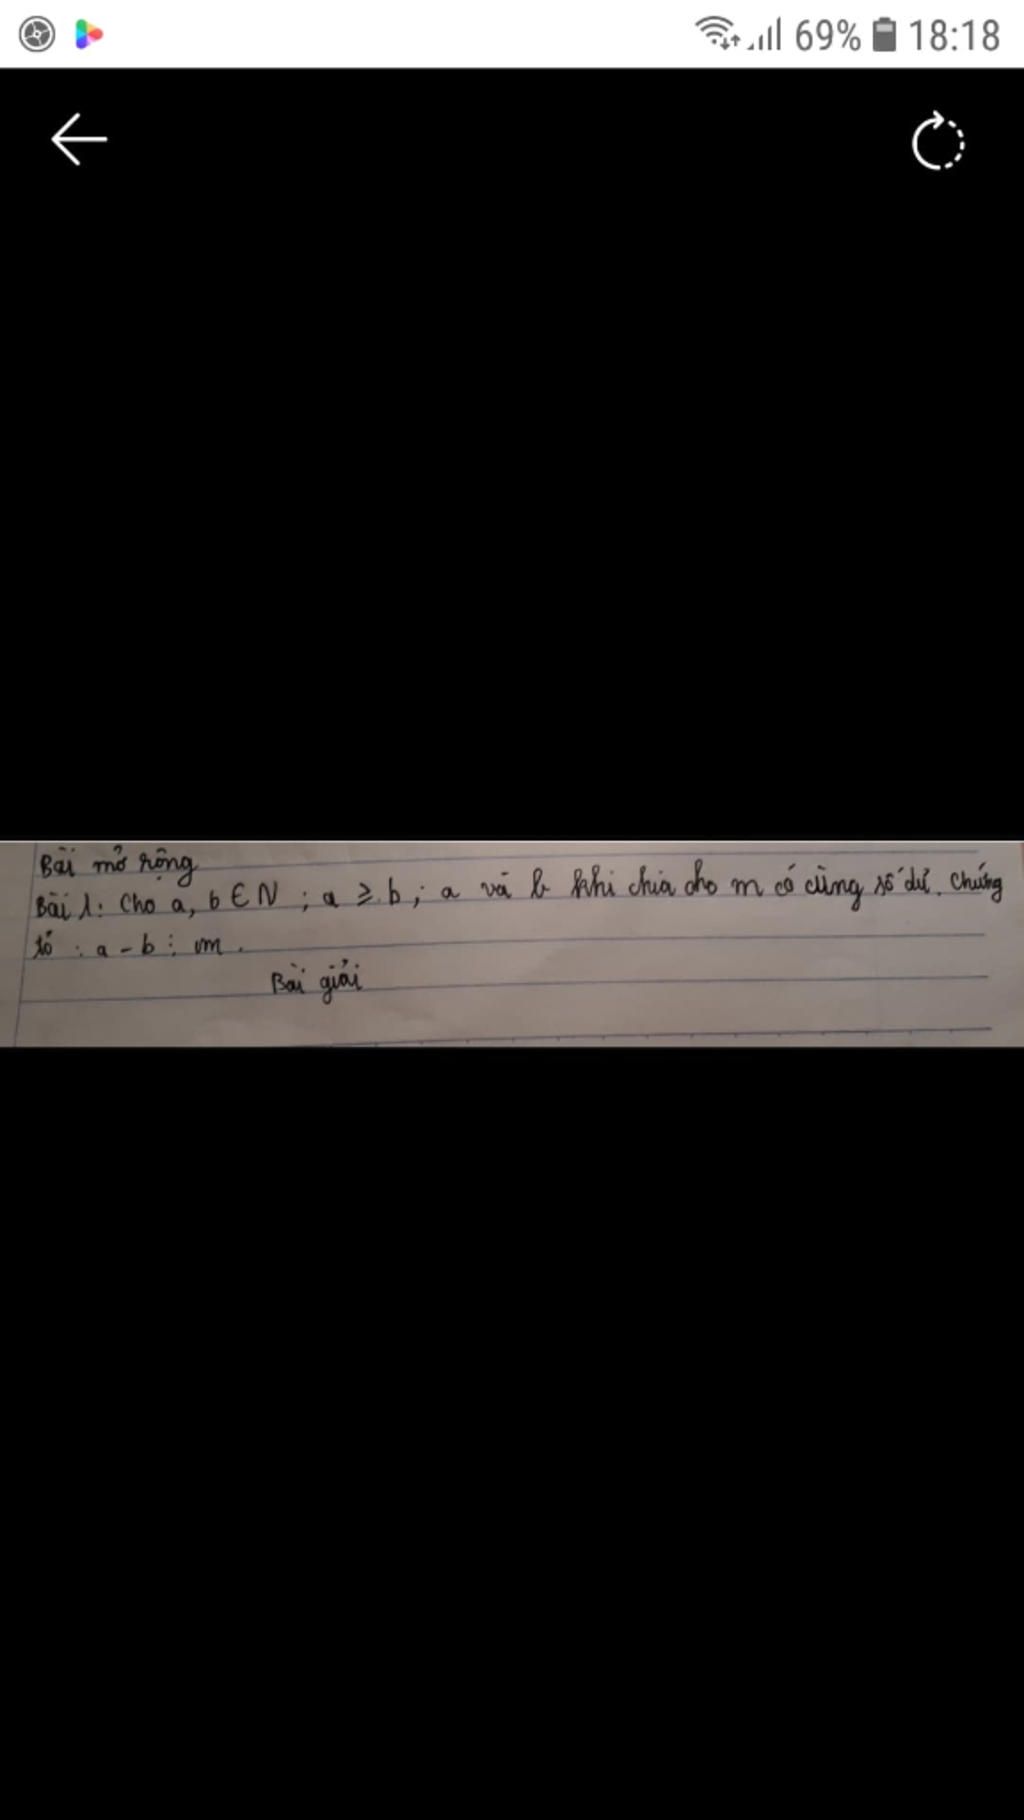 69% 18:18
Bài mở rộng
Bài 1: Cho a, b ∈ N ; a ≥ b ; a và b khi chia cho m có cùng số dư. Chứng
tỏ : a - b ⋮ m .
Bài giải